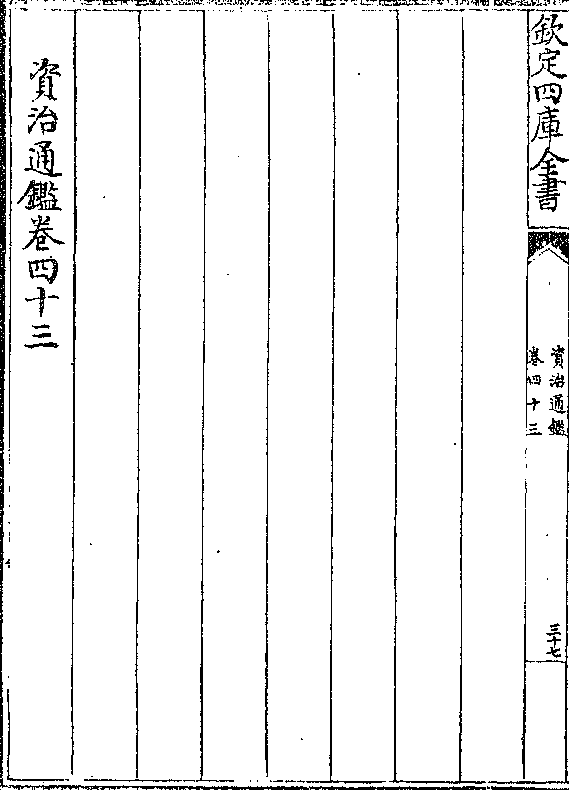 欽定四庫全書
資治通鑑
卷四十三
三十七
資治通鑑卷四十三